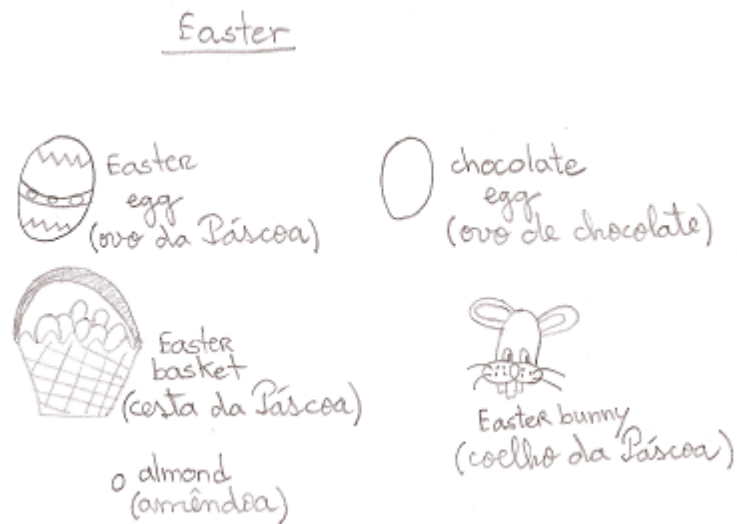 Easter
Easter
egg
(ovo da Páscoa)
chocolate
egg
(ovo de chocolate)
Easter
basket
(cesta da Páscoa)
Easter bunny
(coelho da Páscoa)
almond
(amêndoa)